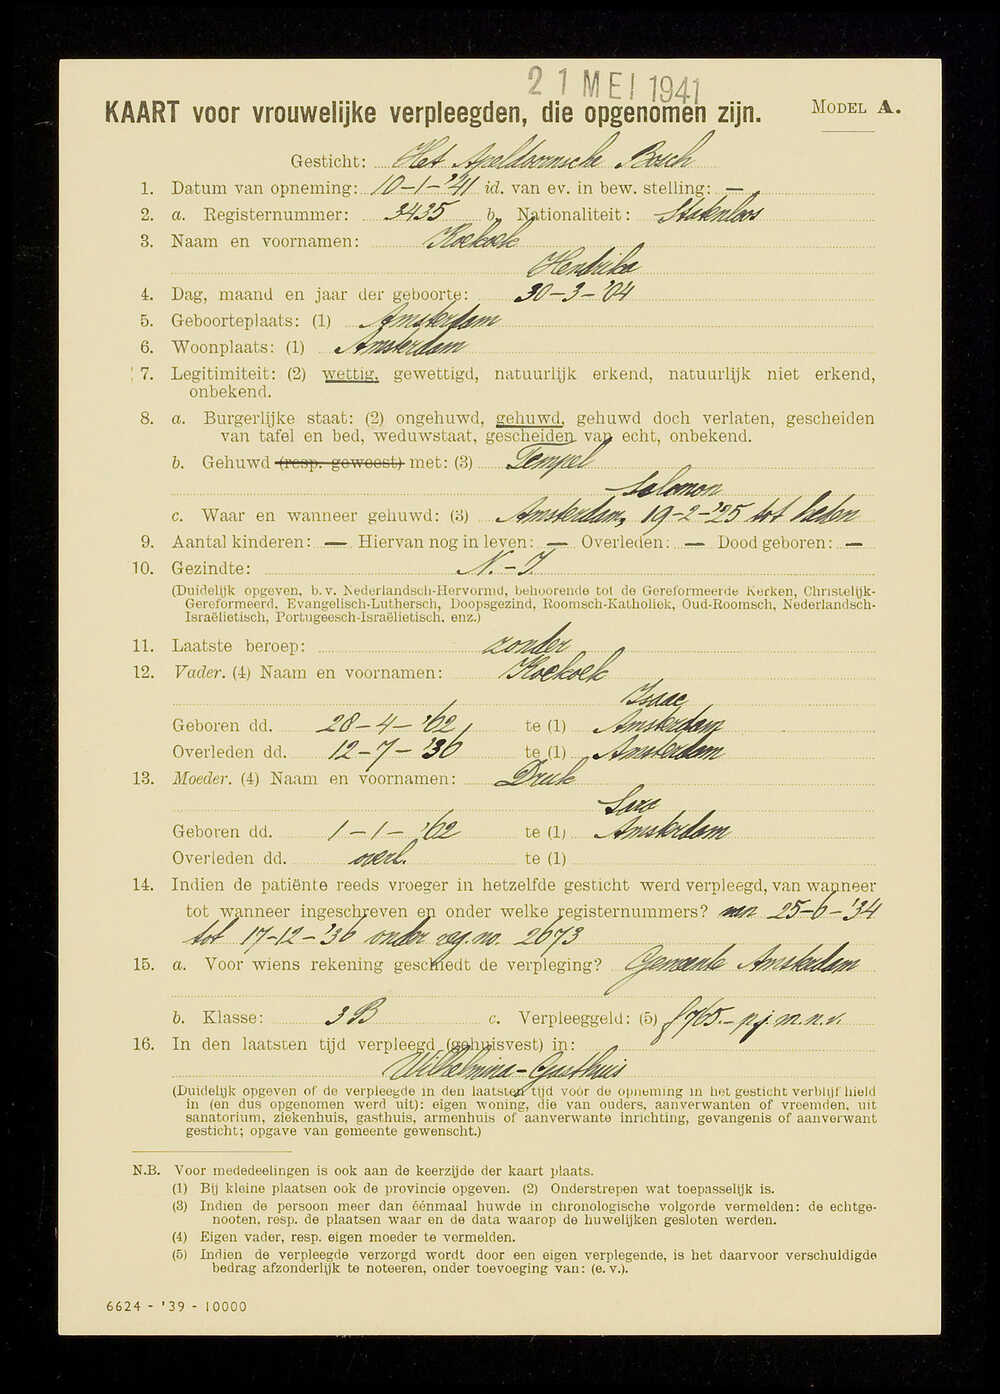 21 MEI 1941
KAART voor vrouwelijke verpleegden, die opgenomen zijn. MODEL A.
Gesticht: Het Apeldoornsche Bosch
1. Datum van opneming: 10-1-'41 id. van ev. in bew. stelling: —
2. a. Registernummer: 3435 b. Nationaliteit: Statenloos
3. Naam en voornamen: Koekoek
Hendrika
4. Dag, maand en jaar der geboorte: 30-3-'04
5. Geboorteplaats: (1) Amsterdam
6. Woonplaats: (1) Amsterdam
7. Legitimiteit: (2) wettig, gewettigd, natuurlijk erkend, natuurlijk niet erkend,
onbekend.
8. a. Burgerlijke staat: (2) ongehuwd, gehuwd, gehuwd doch verlaten, gescheiden
van tafel en bed, weduwstaat, gescheiden van echt, onbekend.
b. Gehuwd (resp. geweest) met: (3) Tempel
Salomon
c. Waar en wanneer gehuwd: (3) Amsterdam, 19-2-'25 tot heden
9. Aantal kinderen: — Hiervan nog in leven: — Overleden: — Dood geboren: —
10. Gezindte: N.-I.
(Duidelijk opgeven, b.v. Nederlandsch-Hervormd, behoorende tot de Gereformeerde Kerken, Christelijk-
Gereformeerd, Evangelisch-Luthersch, Doopsgezind, Roomsch-Katholiek, Oud-Roomsch, Nederlandsch-
Israëlietisch, Portugeesch-Israëlietisch, enz.)
11. Laatste beroep: zonder
12. Vader. (4) Naam en voornamen: Koekoek
Isaac
Geboren dd. 28-4-'62 te (1) Amsterdam
Overleden dd. 12-7-'36 te (1) Amsterdam
13. Moeder. (4) Naam en voornamen: Druk
Sara
Geboren dd. 1-1-'62 te (1) Amsterdam
Overleden dd. overl. te (1)
14. Indien de patiënte reeds vroeger in hetzelfde gesticht werd verpleegd, van wanneer
tot wanneer ingeschreven en onder welke registernummers? van 25-6-'34
tot 17-12-'36 onder reg. no. 2673
15. a. Voor wiens rekening geschiedt de verpleging? Gemeente Amsterdam
b. Klasse: 3 B c. Verpleeggeld: (5) f 765.- p.j. m.n.v.
16. In den laatsten tijd verpleegd (gehuisvest) in:
Wilhelmina-Gasthuis
(Duidelijk opgeven of de verpleegde in den laatsten tijd vóór de opneming in het gesticht verblijf hield
in (en dus opgenomen werd uit): eigen woning, die van ouders, aanverwanten of vreemden, uit
sanatorium, ziekenhuis, gasthuis, armenhuis of aanverwante inrichting, gevangenis of aanverwant
gesticht; opgave van gemeente gewenscht.)
N.B. Voor mededeelingen is ook aan de keerzijde der kaart plaats.
(1) Bij kleine plaatsen ook de provincie opgeven. (2) Onderstrepen wat toepasselijk is.
(3) Indien de persoon meer dan éénmaal huwde in chronologische volgorde vermelden: de echtge-
nooten, resp. de plaatsen waar en de data waarop de huwelijken gesloten werden.
(4) Eigen vader, resp. eigen moeder te vermelden.
(5) Indien de verpleegde verzorgd wordt door een eigen verplegende, is het daarvoor verschuldigde
bedrag afzonderlijk te noteeren, onder toevoeging van: (e. v.).
6624 - '39 - 10000